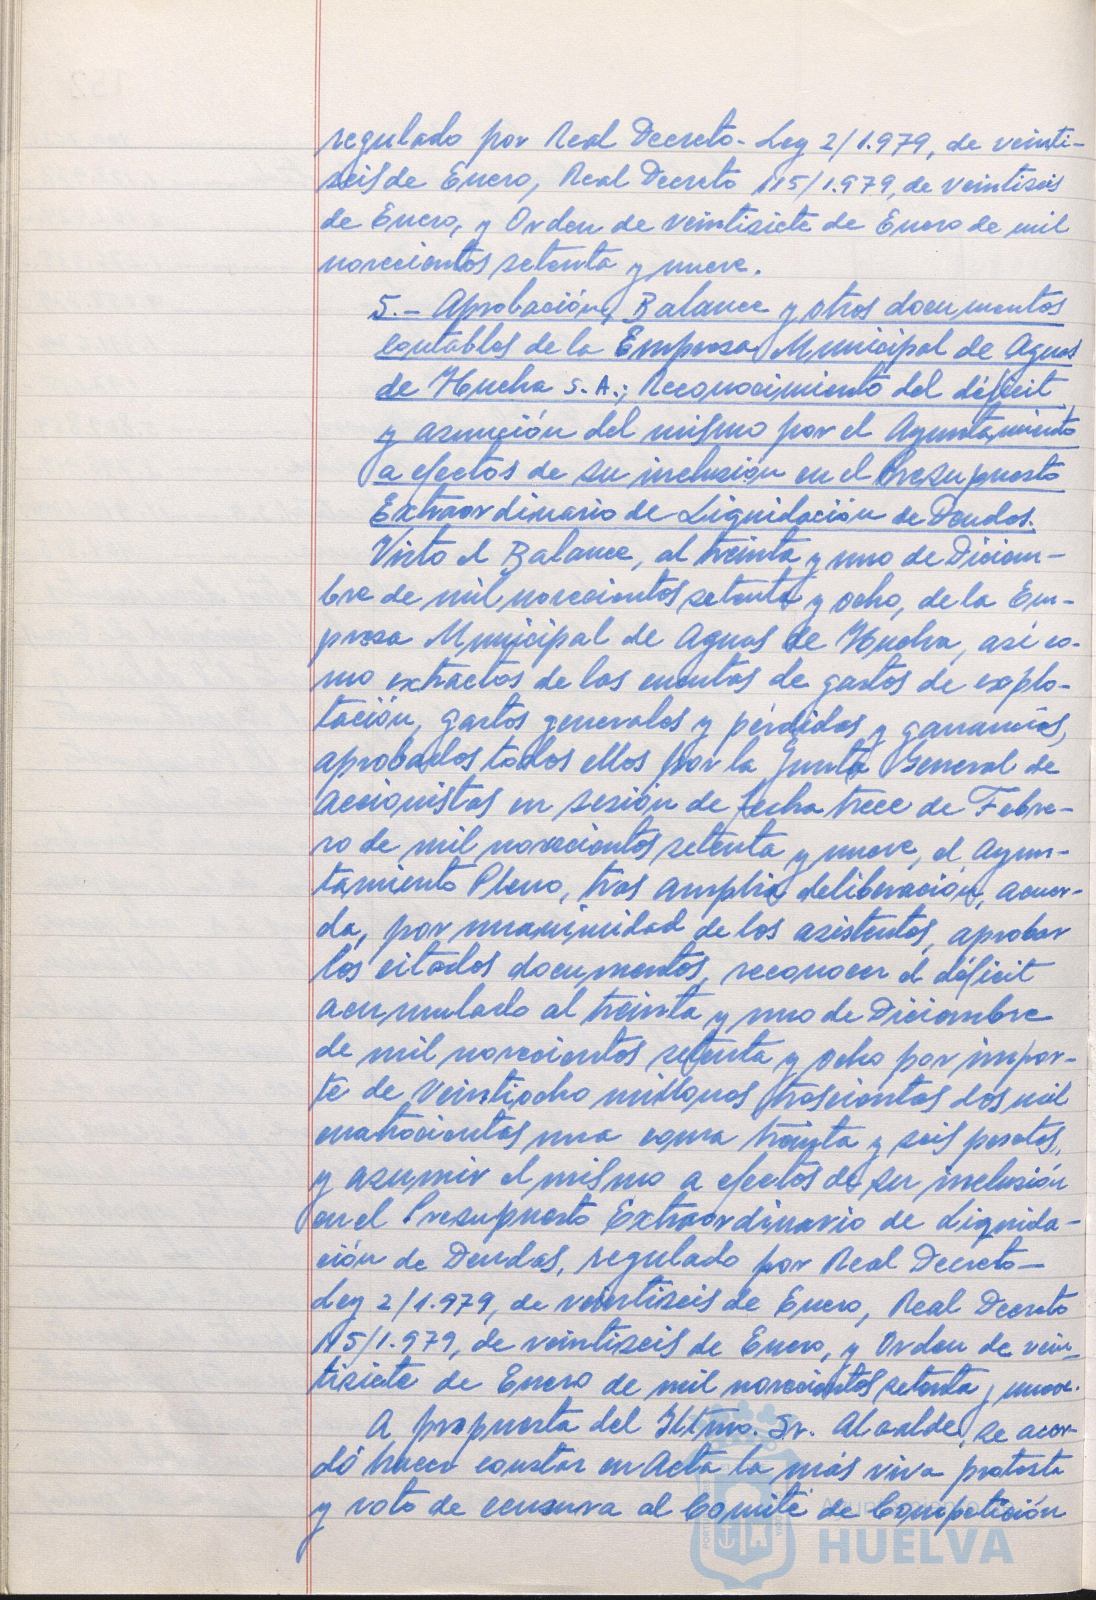 regulado por Real Decreto-Ley 2/1.979, de veinti-
seis de Enero, Real Decreto 115/1.979, de veintiseis
de Enero, y Orden de veintisiete de Enero de mil
novecientos setenta y nueve.
5.- Aprobación, Balance y otros documentos
contables de la Empresa Municipal de Aguas
de Huelva S.A.; Reconocimiento del déficit
y asunción del mismo por el Ayuntamiento
a efectos de su inclusión en el Presupuesto
Extraordinario de Liquidación de Deudas.
Visto el Balance, al treinta y uno de Diciem-
bre de mil novecientos setenta y ocho, de la Em-
presa Municipal de Aguas de Huelva, asi co-
mo extractos de las cuentas de gastos de explo-
tación, gastos generales y pérdidas y ganancias,
aprobados todos ellos por la Junta General de
Accionistas en sesión de fecha trece de Febre-
ro de mil novecientos setenta y nueve, el Ayun-
tamiento Pleno, tras amplia deliberación, acuer-
da, por unanimidad de los asistentes, aprobar
los citados documentos, reconocer el déficit
acumulado al treinta y uno de Diciembre
de mil novecientos setenta y ocho por impor-
te de veintiocho millones trescientas dos mil
cuatrocientas una coma treinta y seis pesetas,
y asumir el mismo a efectos de su inclusión
en el Presupuesto Extraordinario de Liquida-
ción de Deudas, regulado por Real Decreto-
Ley 2/1.979, de veintiseis de Enero, Real Decreto
115/1.979, de veintiseis de Enero, y Orden de vein-
tisiete de Enero de mil novecientos setenta y nueve.
A propuesta del Iltmo. Sr. Alcalde, se acor-
dó hacer constar en Acta la más viva protesta
y voto de censura al Comité de Competición
Ayuntamiento de
HUELVA